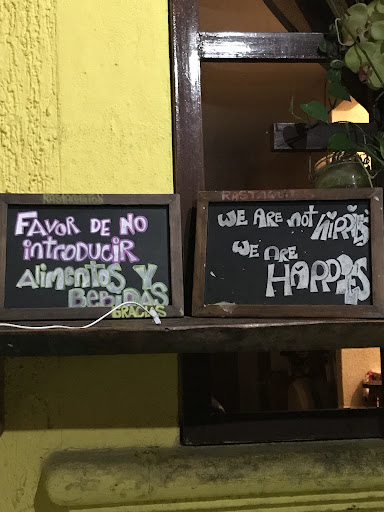 FAVOR DE NO
introducir
Alimentos Y
BEBIDAS
GRACIAS
RASTAQUIO
WE ARE not HIPPIES
WE ARE
HAPPIES